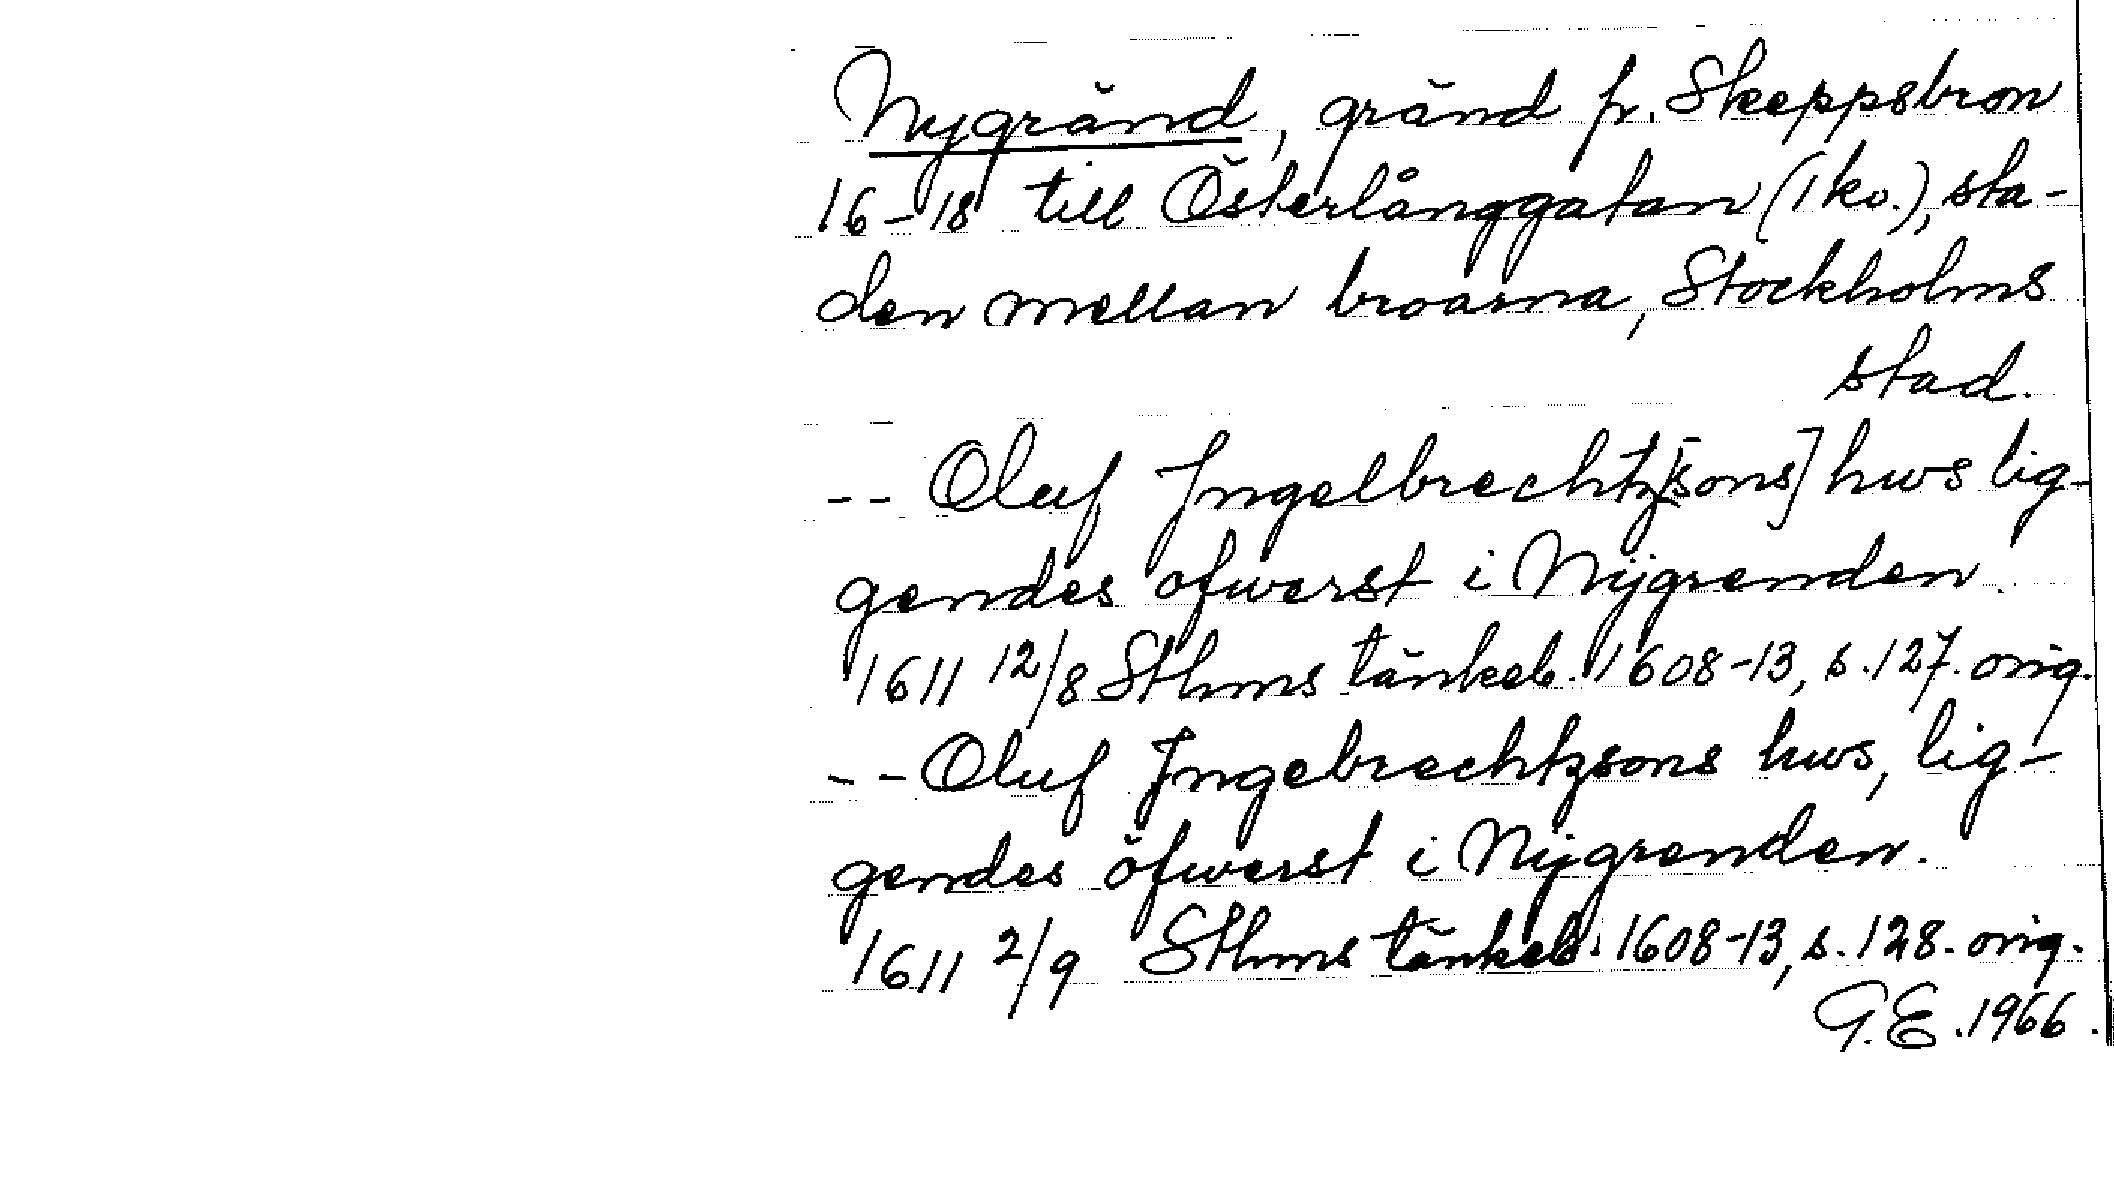 Nygränd, gränd fr. Skeppsbron
16-18 till Österlånggatan (1 kv.), sta-
den mellan broarna, Stockholms
stad.
-- Oluf Ingelbrechtz[sons] hws lig-
gendes ofwerst i Nijgrenden.
1611 12/8 Sthms tänkeb. 1608-13, s. 127. orig.
-- Oluf Ingebrechtzsons hws, lig-
gendes öfwerst i Nijgrenden.
1611 2/9 Sthms tänkeb. 1608-13, s. 128. orig.
G.E. 1966.